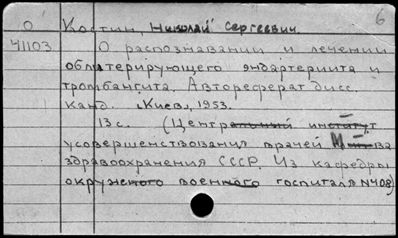 6
О Костин, Николай Сергеевич.
41103 О распознавании и лечении
облитерирующего эндартериита и
тромбангита. Автореферат дисс.
канд. Киев, 1953.
13 с. (Центральный институт
усовершенствования врачей М-ва
здравоохранения СССР. Из кафедры
окружного военного госпиталя №408)